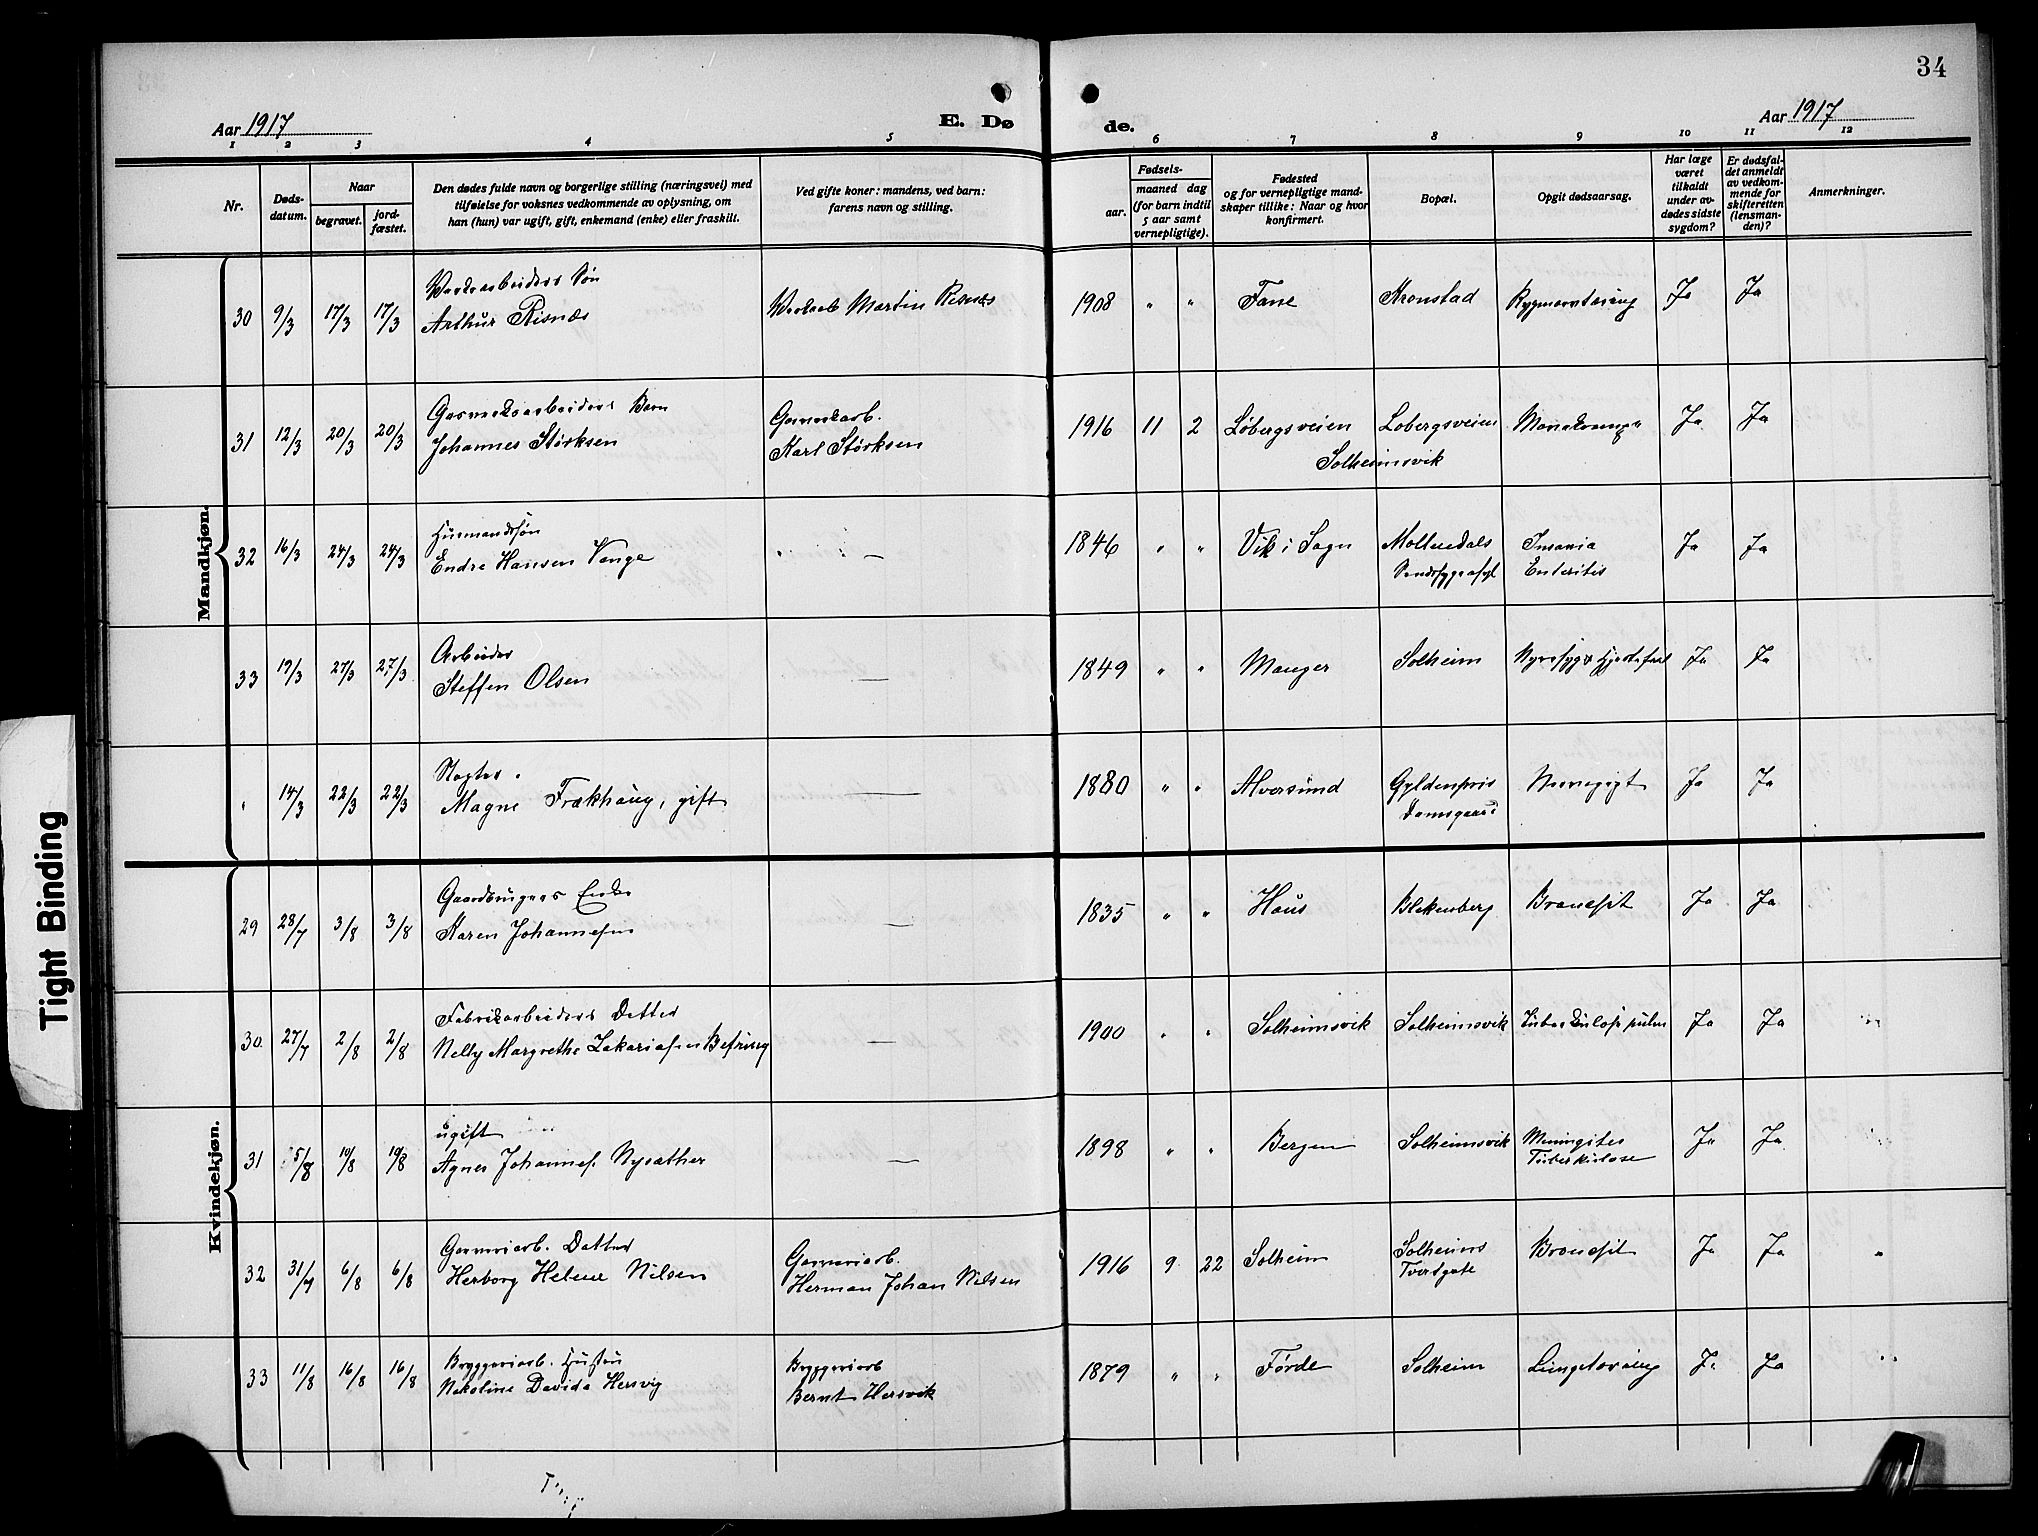 34
Aar 1917
E. Dø de.
Aar 1917
1 2 3 4 5 6 7 8 9 10 11 12
Nr.
Døds-
datum.
Naar
begravet.
jord-
fæstet.
Den dødes fulde navn og borgerlige stilling (næringsvei) med
tilføielse for voksnes vedkommende av oplysning, om
han (hun) var ugift, gift, enkemand (enke) eller fraskilt.
Ved gifte koner: mandens, ved barn:
farens navn og stilling.
Fødsels-
aar.
maaned dag
(for barn indtil
5 aar samt
vernepligtige).
Fødested
og for vernepligtige mand-
skaper tillike: Naar og hvor
konfirmert.
Bopæl.
Opgit dødsaarsag.
Har læge
været
tilkaldt
under av-
dødes sidste
sygdom?
Er dødsfal-
det anmeldt
av vedkom-
mende for
skifteretten
(lensman-
den)?
Anmerkninger.
Mandkjøn.
Søn
30 9/3 17/3 17/3 Arthur Risnæs Martin Risnæs 1908 " " Fane Kronstad Rygmarvstæring Ja Ja
Gasverksarbeiders Barn Gasverkarb.
31 12/3 20/3 20/3 Johannes Størksen Karl Størksen 1916 11 2 Løbergsveien Løbergsveien Ja Ja
Solheimsvik
Husmandssøn
32 16/3 24/3 24/3 Endre Hansen Vange — 1846 " " Vik i Sogn Møllendals Insania Ja Ja
Sindssygeasyl Enteritis
Arbeider
33 19/3 27/3 27/3 Steffen Olsen — 1849 " " Manger Solheim Nyresyg & Hjertefeil Ja Ja
" 14/3 22/3 22/3 Magne Frækhaug, gift — 1880 " " Alversund Gyldenpris Ja Ja
Damsgaard
Kvindekjøn.
Gaardbrugers Enke
29 28/7 3/8 3/8 Karen Johannesen — 1835 " " Haus Blekenberg Bronchit Ja Ja
Fabrikarbeiders Datter
30 27/7 2/8 2/8 Nelly Margrethe Zakariasen Befring — 1900 " " Solheimsvik Solheimsvik Tuberkulose pulm Ja Ja
ugift
31 5/8 10/8 10/8 Agnes Johannes. Nysæther — 1898 " " Bergen Solheimsvik Meningites Ja Ja
Tuberkulose
Garveriarb. Datter Garveriarb.
32 31/7 6/8 6/8 Herborg Helene Nilsen Herman Johan Nilsen 1916 9 22 Solheim Solheims Bronchit Ja Ja
Tverdgate
Bryggeriarb. Hustru Bryggeriarb
33 11/8 16/8 16/8 Nikoline Davida Hersvig Bernt Hersvik 1879 " " Førde Solheim Lungetæring Ja Ja
Tight Binding